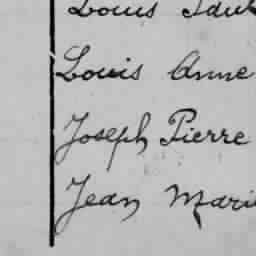 Louis
Louis Anne
Joseph Pierre
Jean Marie